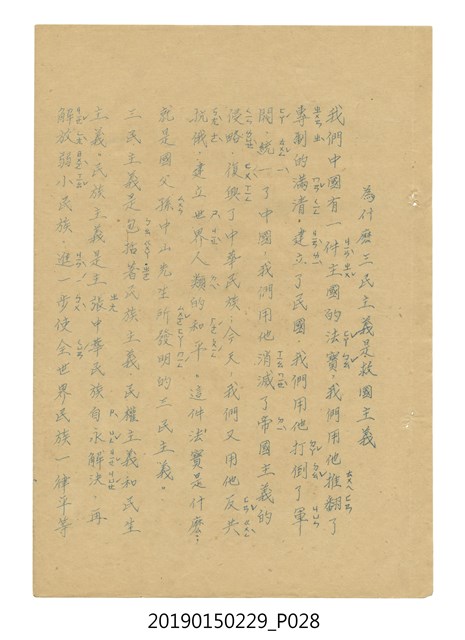 為什麼三民主義是救國主義
我們中國有一件主國的法寶。我們用他推翻了
專制的滿清。建立了民國。我們用他打倒了軍
閥．統一了中國．我們用他消滅了帝國主義的
侵略．復興了中華民族．今天．我們又用他反共
抗俄．建立世界人類的和平。這件法寶是什麼？
就是國父孫中山先生所發明的三民主義。
三民主義是包括著民族主義民權主義和民生
主義。民族主義是主張中華民族自求解決．再
解放弱小民族．進一步使全世界民族一律平等
20190150229_P028